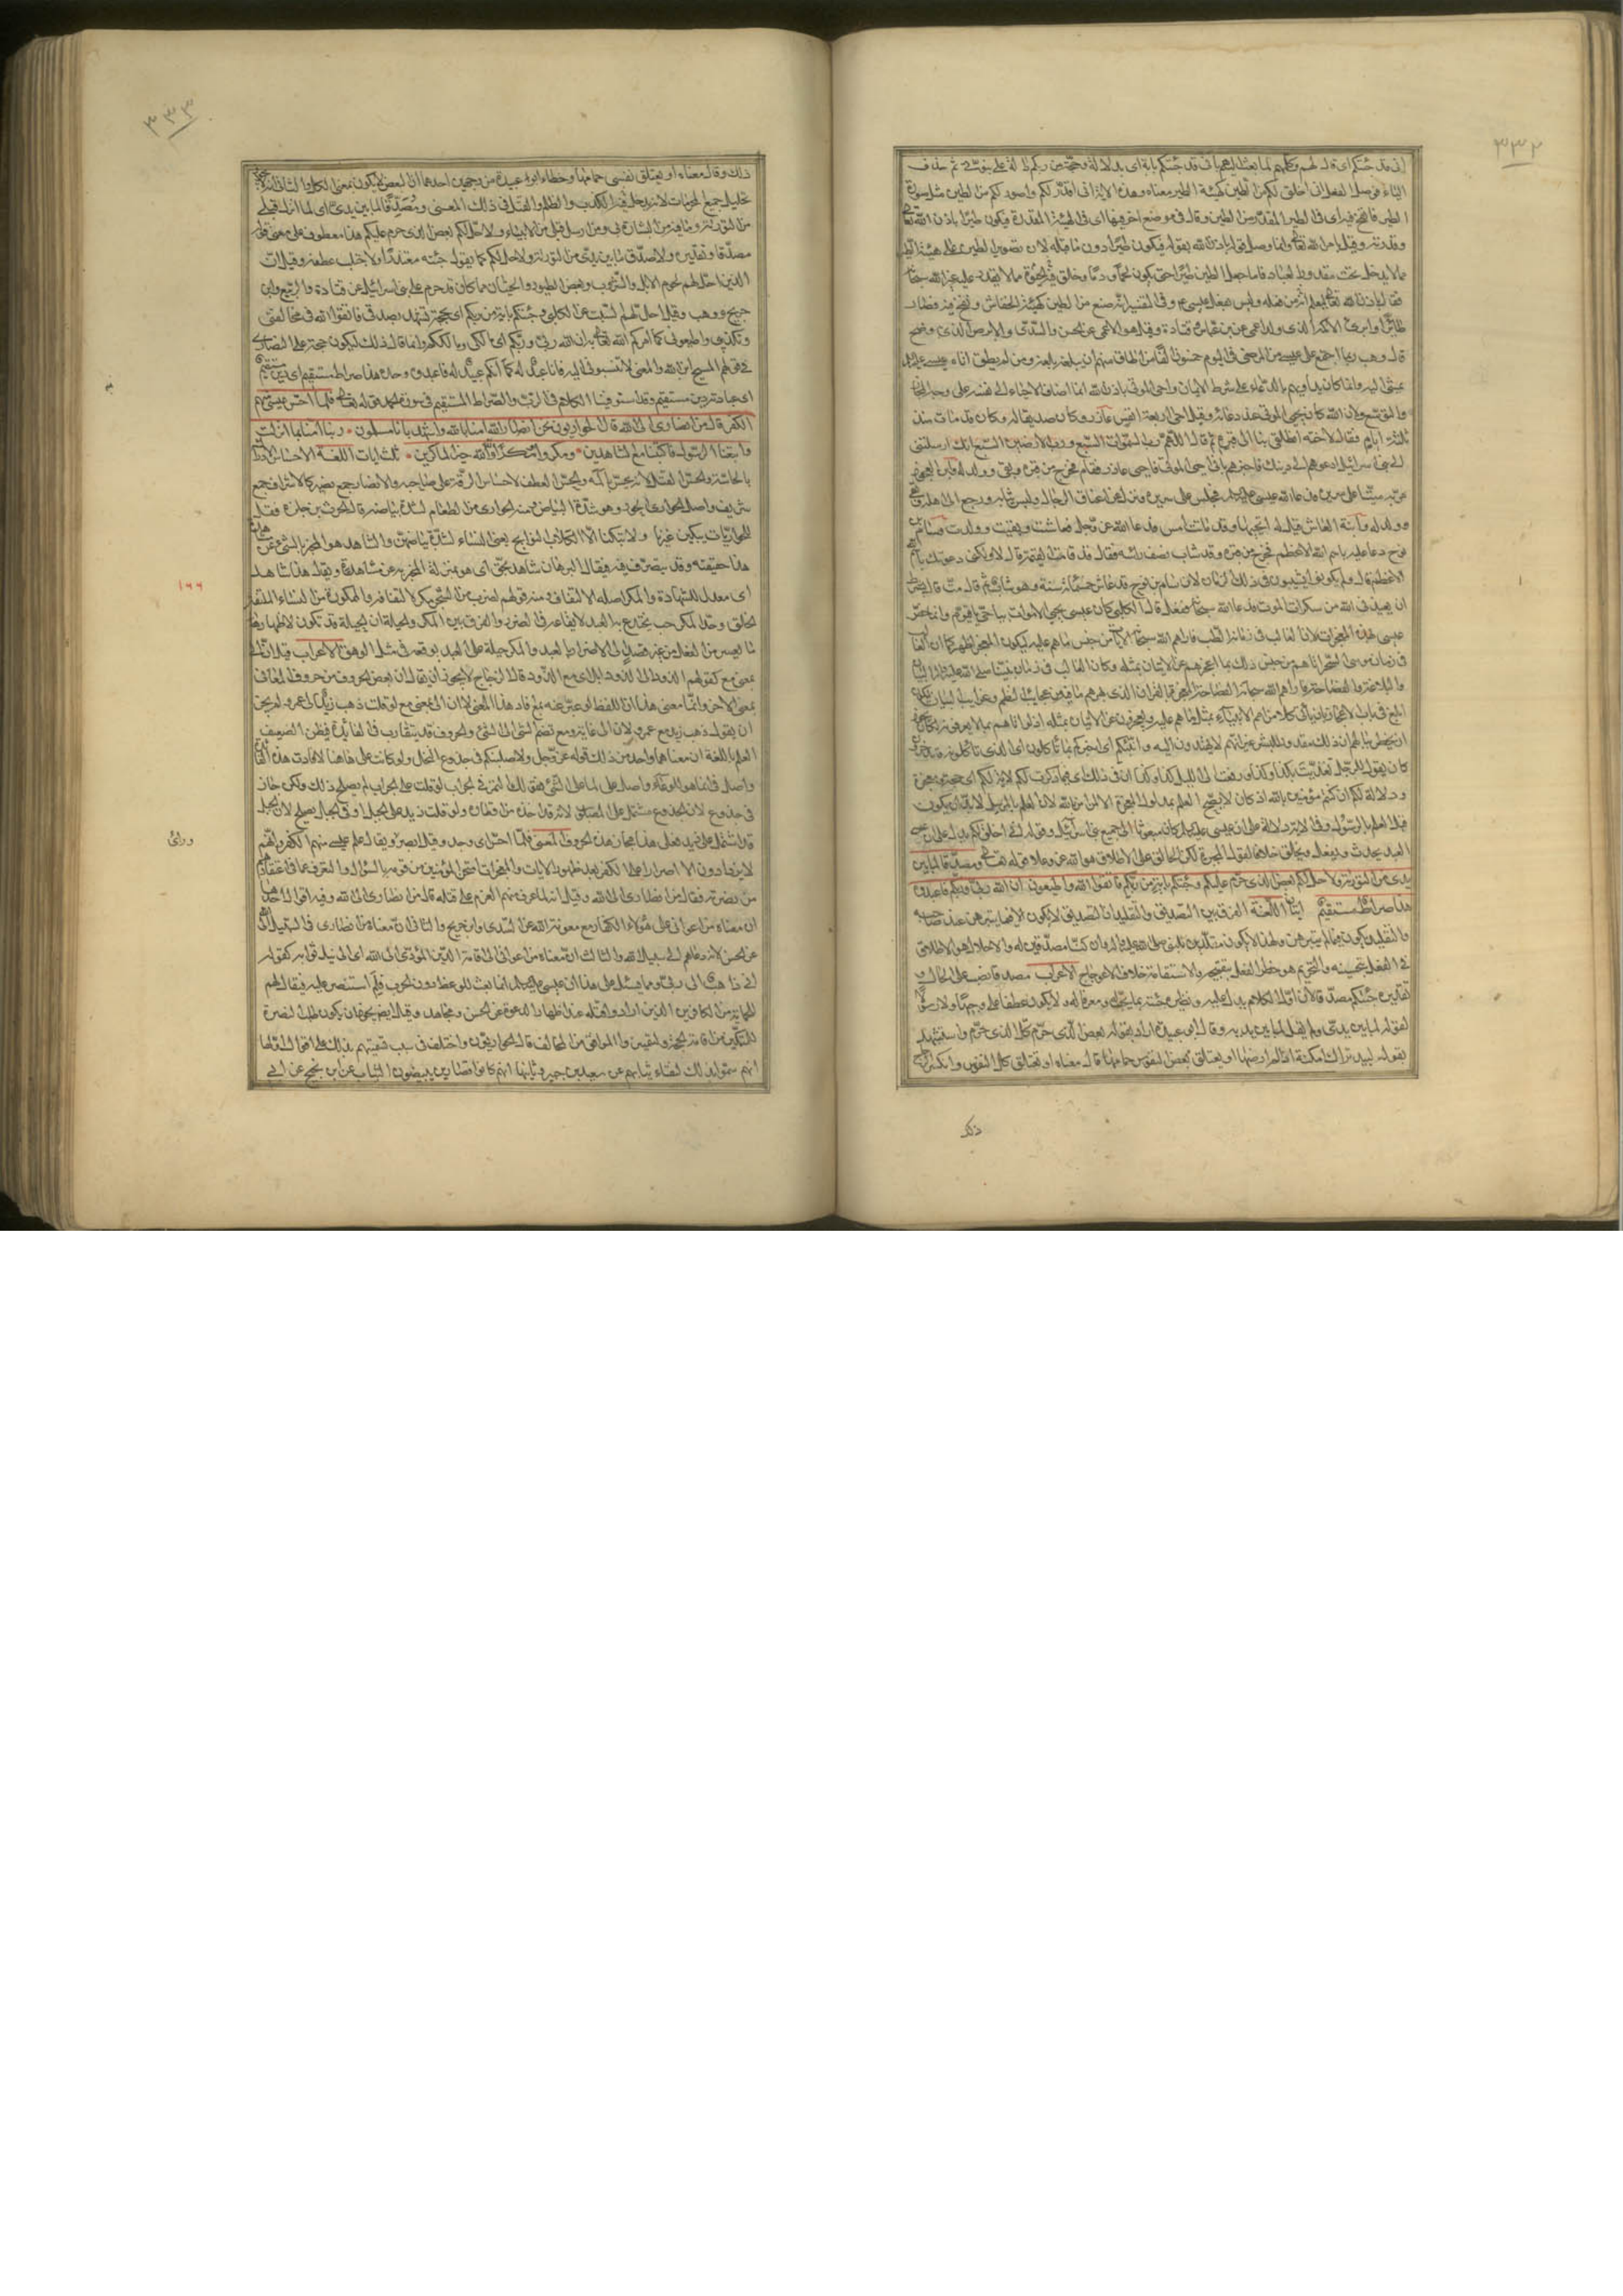 ٣٣٢
انى قد جئتكم اى قال لهم وكلمهم لما بعث اليهم بانى قد جئتكم باية اى بدلالة وحجة من ربكم دالة على نبوتى ثم حذف
الباء فوصل الفعل انى اخلق لكم من الطين كهيئة الطير معناه وهذه الاية انى اقدر لكم واصور لكم من الطين مثل صورة
الطير فانفخ فيه اى فى الطير المقدر من الطين وقال فى موضع اخر فيها اى فى الهيئة المقدرة فيكون طيرا باذن الله
وقدرته وقيل بامر الله تعالى وانما وصل قوله باذن الله بقوله فيكون طيرا دون ما قبله لان تصوير الطين على هيئة الطير
مما لا يدخل تحت مقدور العباد فاما جعل الطين طيرا حتى يكون لحما ودما وخلق الحيوة فيه مما لا يقدر عليه غير الله
فقال باذن الله ليعلم انه من فعله وليس بفعل عيسى وفى التفسير انه صنع من الطين كهيئة الخفاش ونفخ فيه فصار
طائرا وابرئ الاكمه الذى ولد اعمى عن ابن عباس وقتادة وقيل هو الاعمى عن الحسن والسدى والابرص الذى به وضح
قال وهب ربما اجتمع على عيسى من المرضى فى اليوم خمسون الفا من اطاق منهم ان يبلغه بلغه ومن لم يطق اتاه عيسى
يمشى اليه وانما كان يداويهم بالدعاء على شرط الايمان واحى الموتى باذن الله انما اضاف الاحياء الى نفسه على وجه المجاز
والتوسع ولان الله كان يحيى الموتى عند دعائه وقيل احى اربعة انفس عازر وكان صديقا له وكان قد مات منذ
ثلثة ايام فقال لاخته انطلقى بنا الى قبره ثم قال اللهم رب السموات السبع ورب الارضين السبع انك ارسلتنى
الى بنى اسرائيل ادعوهم الى دينك واخبرهم بانى احى الموتى فاحى عازر فقام فخرج من قبره وبقى وولد له وابن العجوز
مر به ميتا على سرير فدعا الله عيسى عليه السلام فجلس على سريره ونزل عن اعناق الرجال ولبس ثيابه ورجع الى اهله وبقى
وولد له وابنة العاشر قيل له اتحييها وقد ماتت امس فدعا الله عز وجل فعاشت وبقيت وولدت وسام بن
نوح دعا عليه باسم الله الاعظم فخرج من قبره وقد شاب نصف راسه فقال قد قامت القيمة قال لا ولكنى دعوتك باسم الله
الاعظم قال ولم يكونوا يشيبون فى ذلك الزمان لان سام بن نوح قد عاش خمسمائة سنة وهو شاب ثم قال له مت قال بشرط
ان يعيذنى الله من سكرات الموت فدعا الله سبحانه ففعل قال الكلبى كان عيسى يحيى الاموات بيا حى يا قيوم وانما خص
عيسى بهذه المعجزات لان الغالب كان فى زمانه الطب فاراهم الله سبحانه الايات من جنس ما هم عليه ليكون المعجزة اظهر كما ان الغالب
فى زمان موسى السحر اتاهم من جنس ذلك بما اعجزهم عن الاتيان بمثله وكان الغالب فى زمان نبينا صلى الله عليه واله البيان
والبلاغة والفصاحة فاراهم الله سبحانه المعجزة بالقران الذى بهرهم ما فيه من عجائب النظم وغرائب البيان ليكون
ابلغ فى باب الاعجاز بان ياتى كلا من امم الانبياء بمثل ما هم عليه ويعجزون عن الاتيان بمثله اذ لو اتاهم بما لا يعرفونه لكان يجوز
ان يخطر ببالهم ان ذلك مقدور للبشر غير انهم لا يهتدون اليه وانبئكم اى اخبركم بما تاكلون اى الذى تاكلونه وتدخرونه
كان يقول للرجل تغديت بكذا وكذا ورفعت الى الليل كذا وكذا ان فى ذلك اى فيما ذكرت لكم لاية لكم اى حجة ومعجزة
ودلالة لكم ان كنتم مؤمنين بالله اذ كان لا يصح العلم بمدلول المعجزة الا لمن امن بالله لان العلم بالمرسل لا بد ان يكون
قبل العلم بالرسول وفى الاية دلالة على ان عيسى عليه السلام كان مبعوثا الى جميع بنى اسرائيل وقوله انى اخلق لكم يدل على ان
العبد يحدث ويفعل ويخلق خلافا لقول المجبرة لكن الخالق على الاطلاق هو الله عز وعلا قوله تعالى ومصدقا لما بين
يدى من التورية ولاحل لكم بعض الذى حرم عليكم وجئتكم باية من ربكم فاتقوا الله واطيعون ان الله ربى وربكم فاعبدوه
هذا صراط مستقيم ايتان اللغة الفرق بين التصديق والتقليد ان التصديق لا يكون الا فيما يتبرهن عند صاحبه
والتقليد يكون فيما لم يتبرهن ولهذا لا نكون مقلدين للنبى صلى الله عليه واله وان كنا مصدقين له والاحلال هو الاطلاق
فى الفعل بتحسينه والتحريم هو حظر الفعل بتقبيحه والاستقامة خلاف الاعوجاج الاعراب مصدقا نصب على الحال و
تقديره جئتكم مصدقا لان اول الكلام يدل عليه ونظيره جئته بما يحب ومعرفا له ولا يكون عطفا على وجيها ولا رسولا
لقوله لما بين يدى ولم يقل لما بين يديه وقال ابو عبيدة اراد بقوله بعض الذى حرم كل الذى حرم واستشهد
بقول لبيد تراك امكنة اذا لم ارضها او يعتلق بعض النفوس حمامها قال معناه او يعتلق كل النفوس وانكر الزجاج
ذلك
٣٣٣
ذلك وقال معناه او يعتلق نفسى حمامها وخطاء ابو عبيدة من وجهين احدهما ان البعض لا يكون بمعنى الكل والثانى انه لا يجوز
تحليل جميع المحرمات لانه يدخل فيه الكذب والظلم والقتل فى ذلك المعنى ومصدقا لما بين يدى اى لما انزل قبلى
من التورية وما فيه من البشارة بى ومن ارسل قبلى من الانبياء ولاحل لكم بعض الذى حرم عليكم هذا معطوف على معنى قوله
مصدقا وتقديره ولاصدق ما بين يدى من التورية ولاحل لكم كما يقول جئته معتذرا ولاجتلب عطفه وقيل ان
الذى احل لهم لحوم الابل والثروب وبعض الطيور والحيتان مما كان قد حرم على بنى اسرائيل عن قتادة والربيع وابن
جريج ووهب وقيل احل لهم السبت عن الكلبى وجئتكم باية من ربكم اى بحجة تشهد بصدقى فاتقوا الله فى مخالفتى
وتكذيبى واطيعونى كما امركم الله تعالى به ان الله ربى وربكم اى مالكى ومالككم وانما قال ذلك ليكون حجة على النصارى
فى قولهم المسيح ابن الله والمعنى لا تنسبونى اليه فانا عبد له كما انكم عبيد له فاعبدوه وحده هذا صراط مستقيم اى دين مستقيم
اى عبادته دين مستقيم وقد استوفينا الكلام فى الرب والصراط المستقيم فى سورة الحمد قوله تعالى فلما احس عيسى منهم
الكفر قال من انصارى الى الله قال الحواريون نحن انصار الله امنا بالله واشهد بانا مسلمون ربنا امنا بما انزلت
واتبعنا الرسول فاكتبنا مع الشاهدين ومكروا ومكر الله والله خير الماكرين ثلث ايات اللغة الاحساس الادراك
بالحاسة والحس القتل لانه يحس بالمه والحس العطف لاحساس الرقة على صاحبه والانصار جمع نصير كالاشراف جمع
شريف واصل الحوارى الحور وهو شدة البياض ومنه الحوارى من الطعام لشدة بياضه قال الحرث بن حلزة فقل
للحواريات يبكين غيرنا ولا تبكنا الا الكلاب النوابح يعنى النساء لشدة بياضهن والشاهد هو المخبر بالشئ عن مشاهدة
هذا حقيقته وقد يتصرف فيه فيقال البرهان شاهد بحق اى هو بمنزلة المخبر به عن مشاهدة ويقال هذا شاهد
اى معد للشهادة والمكر اصله الالتفاف ومنه قولهم لضرب من الشجر مكر لالتفافه والممكورة من النساء الملتفة
الخلق وحد المكر خب يختدع به العبد لايقاعه فى الضر والفرق بين المكر والحيلة ان الحيلة قد تكون لاظهار
ما يعسر من الفعل من غير قصد الى الاضرار بالعبد والمكر حيلة على العبد توقعه فى مثل الوهق الاعراب قيل ان الى
بمعنى مع كقولهم الذود الى الذود ابل اى مع الذود قال الزجاج لا يجوز ان يقال ان بعض الحروف من حروف المعانى
بمعنى الاخر وانما معنى هذا ان اللفظ لو عبر عنه بمع افاد هذا المعنى لا ان الى بمعنى مع لو قلت ذهب زيد الى عمرو لم يجز
ان يقول ذهب زيد مع عمرو لان الى غاية ومع تضم الشئ الى الشئ والحروف قد يتقارب فى الفائدة فيظن الضعيف
العلم باللغة ان معناهما واحد من ذلك قوله عز وجل ولاصلبنكم فى جذوع النخل ولو كانت على هاهنا لافادت هذه الفائدة
واصل فى انما هو للوعاء واصل على لما على الشئ كقولك التمر فى الجراب لو قلت على الجراب لم يصلح ذلك ولكن جاز
فى جذوع لان الجذوع مشتمل على المصلوب لانه قد اخذه من اقطاره ولو قلت زيد على الجبل وفى الجبل يصلح لان الجبل
قد اشتمل على زيد فعلى هذا مجاز هذه الحروف المعنى فلما احس اى وجد وقيل ابصر ويقال علم عيسى منهم الكفر وانهم
لا يزدادون الا اصرارا على الكفر بعد ظهور الايات والمعجزات امتحن المؤمنين من قومه بالسؤال والتعرف عما فى اعتقادهم
من نصرته فقال من انصارى الى الله وقيل انه لما عرف منهم العزم على قتله قال من انصارى الى الله وفيه اقوال احدها
ان معناه من اعوانى على هؤلاء الكفار مع معونة الله عن السدى وابن جريج والثانى ان معناه من انصارى فى السبيل الى الله
عن الحسن لانه دعاهم الى سبيل الله والثالث ان معناه من اعوانى على اقامة الدين المؤدى الى الله اى الى نيل ثوابه كقوله
انى ذاهب الى ربى ومما يسئل على هذا ان عيسى عليه السلام انما بعث للوعظ دون الحرب فلم استنصر عليهم فيقال لهم
للحماية من الكافرين الذين ارادوا قتله عند اظهار الدعوة عن الحسن ومجاهد وقيل ايضا يجوز ان يكون طلب النصرة
للتمكين من اقامة الحجة ولتمييز الموافق من المخالف قال الحواريون واختلف فى سبب تسميتهم بذلك على اقوال احدها
انهم سموا بذلك لنقاء ثيابهم عن سعيد بن جبير وثانيها انهم كانوا قصارين يبيضون الثياب عن ابن نجيح عن ابى
١٦٦